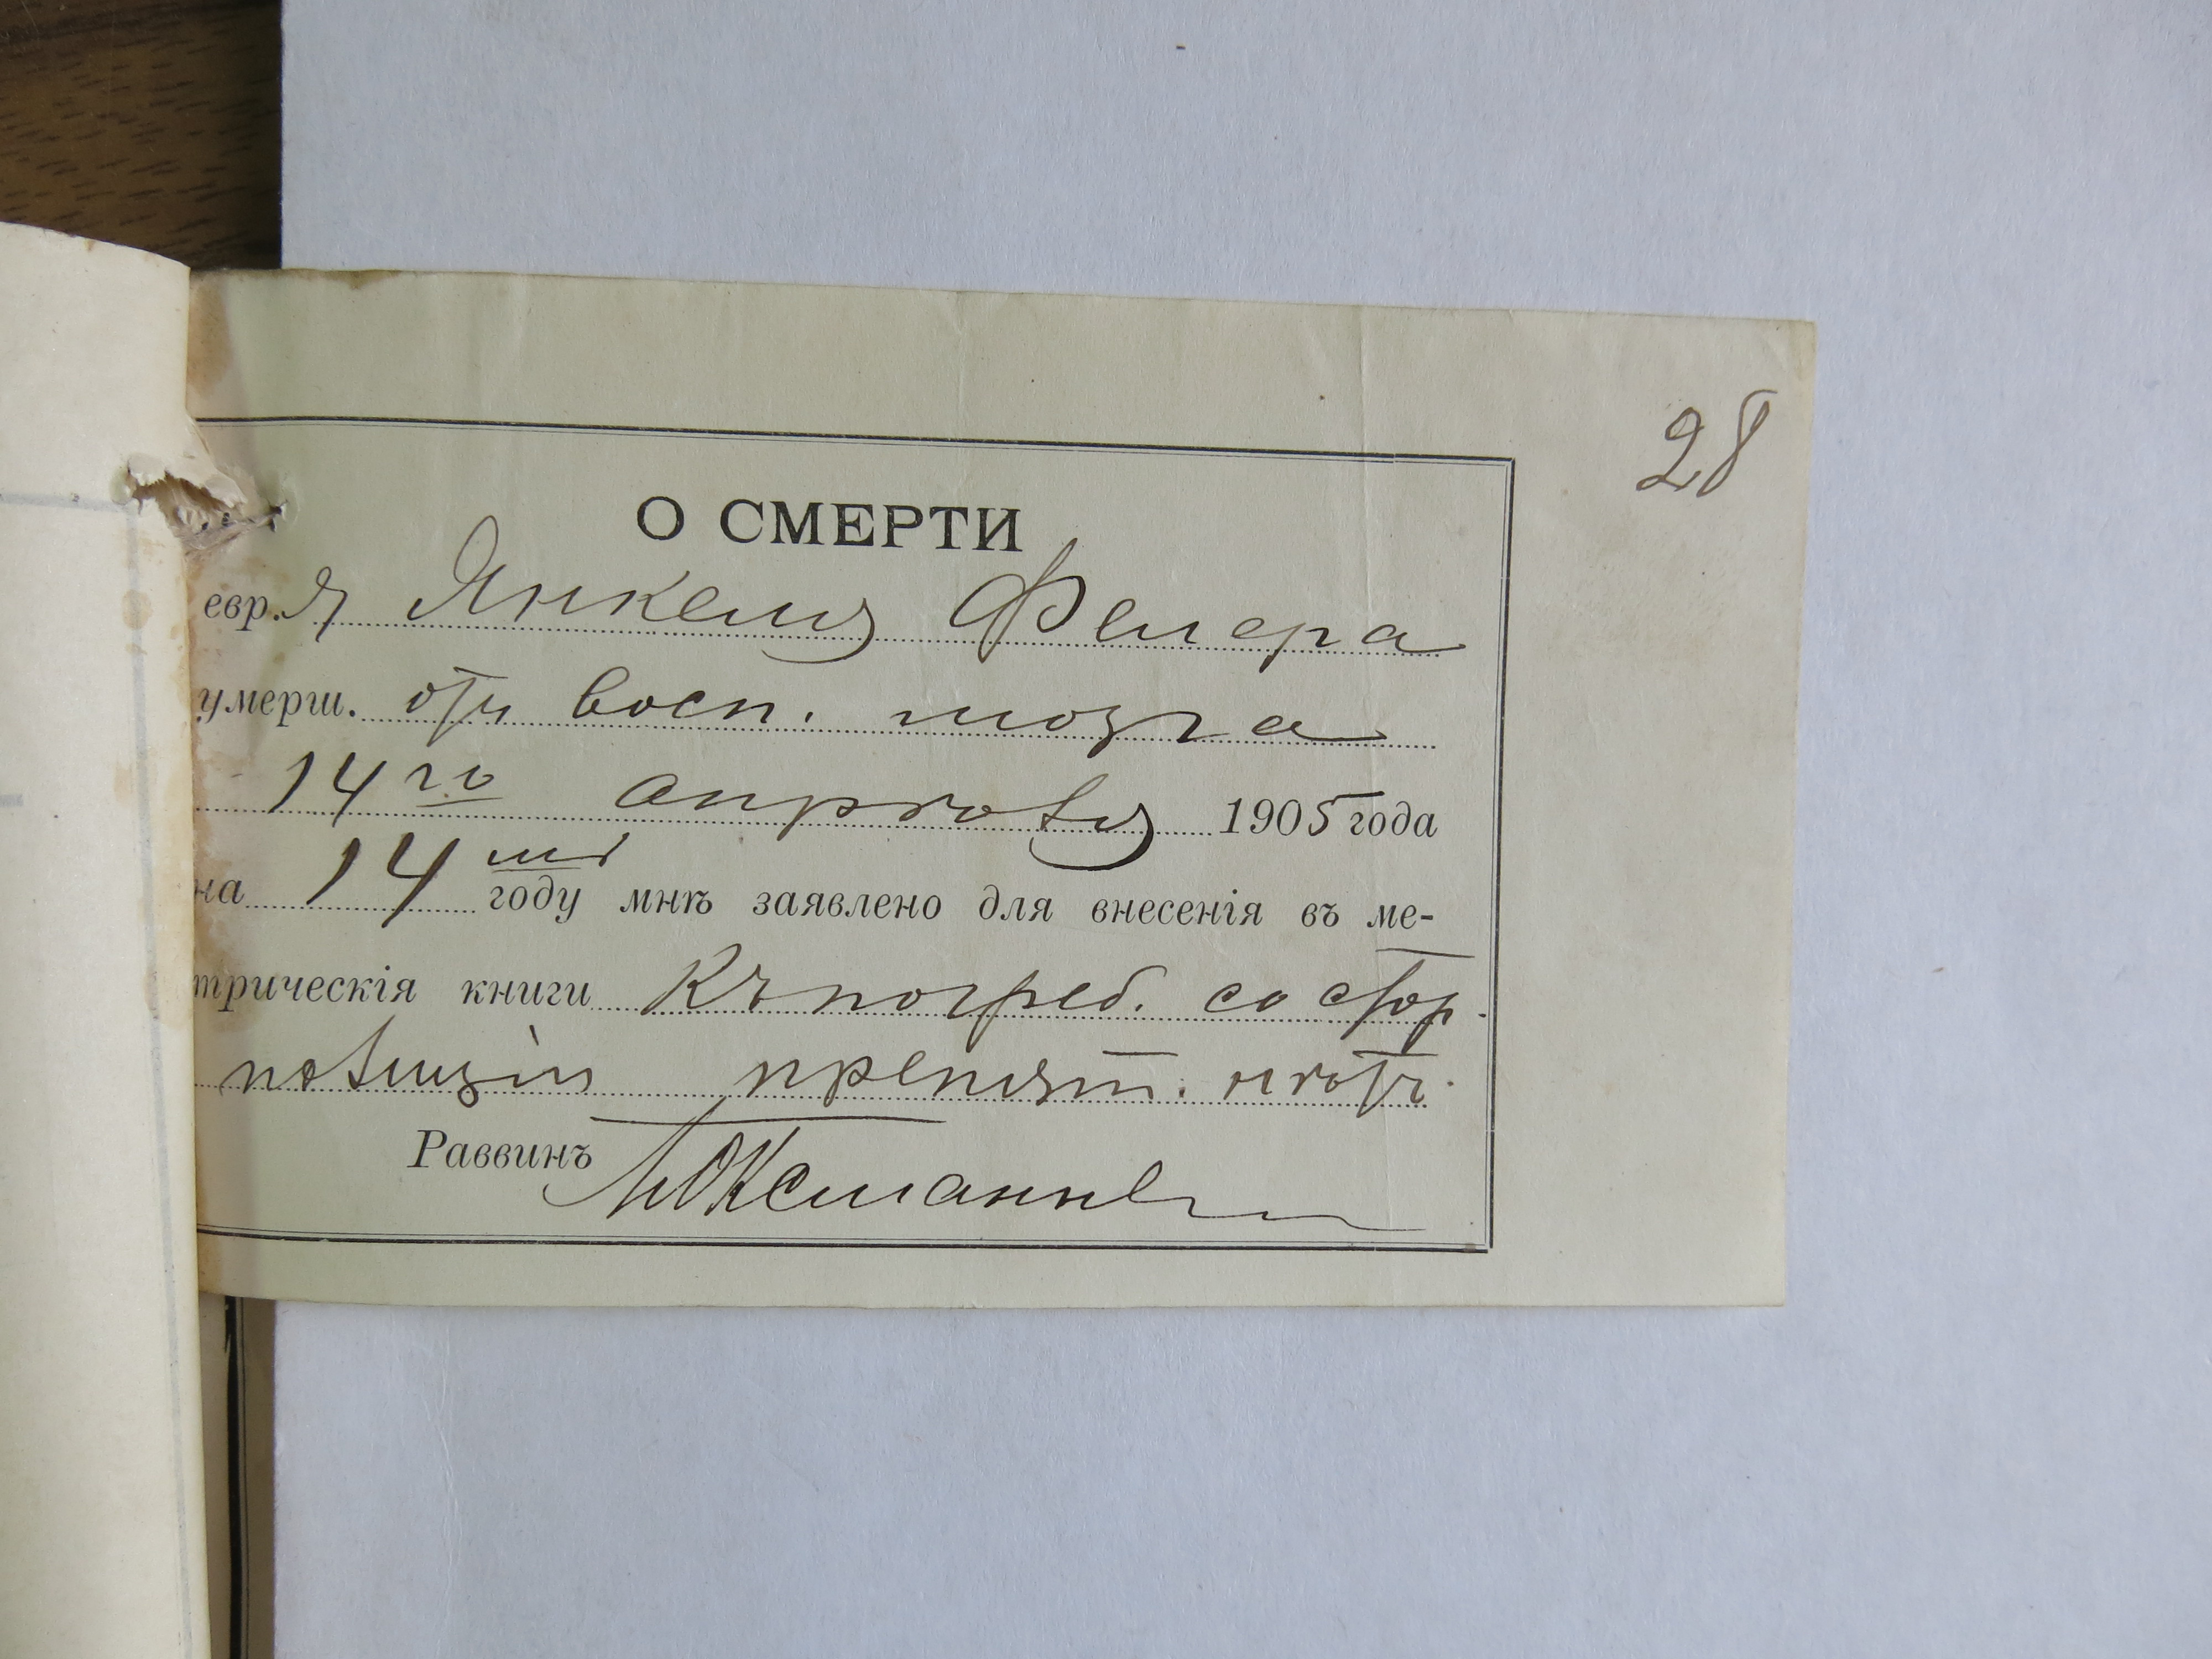 28
О СМЕРТИ
евр.я Янкеля Фелера
умерш. отъ восп. мозга
14го апрѣля 1905 года
на 14мъ году мнѣ заявлено для внесенія въ ме-
трическія книги Къ погреб. со стор.
полиціи препят. нѣтъ.
Раввинъ